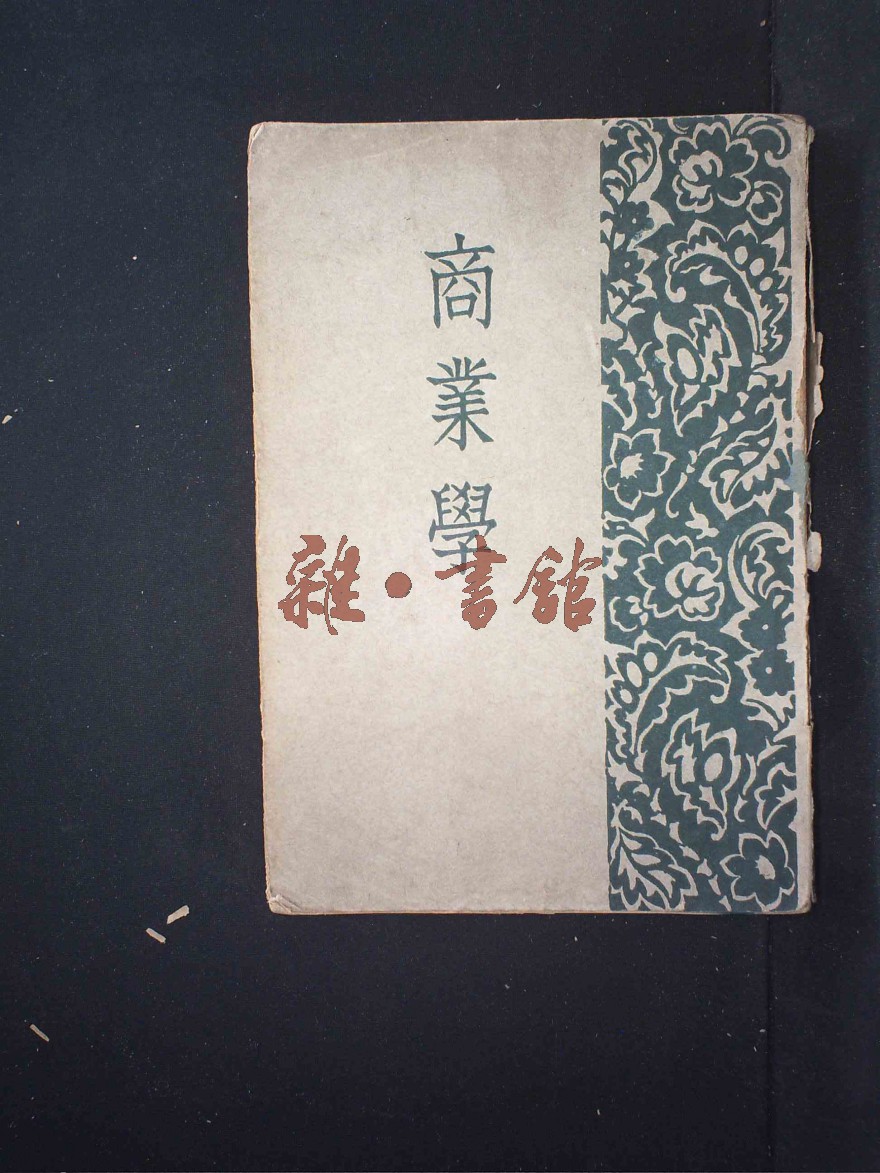 商業學
雜·書館